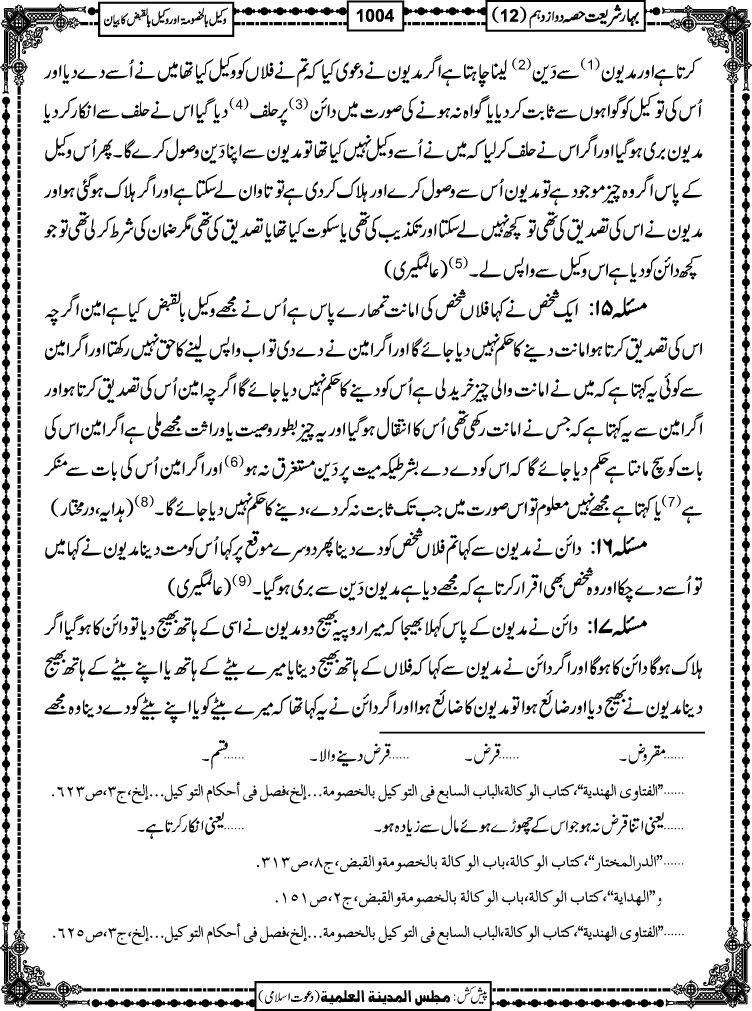 بہارِ شریعت حصہ دوازدہم (12)
1004
وکیل بالخصومۃ اور وکیل بالقبض کا بیان
کرتا ہے اور مدیون (1) سے دَین (2) لینا چاہتا ہے اگر مدیون نے دعویٰ کیا کہ تم نے فلاں کو وکیل کیا تھا میں نے اُسے دے دیا اور
اُس کی توکیل کو گواہوں سے ثابت کر دیا یا گواہ نہ ہونے کی صورت میں دائن (3) پر حلف (4) دیا گیا اس نے حلف سے انکار کر دیا
مدیون بری ہوگیا اور اگر اس نے حلف کر لیا کہ میں نے اُسے وکیل نہیں کیا تھا تو مدیون سے اپنا دَین وصول کرے گا۔ پھر اُس وکیل
کے پاس اگر وہ چیز موجود ہے تو مدیون اُس سے وصول کرے اور ہلاک کر دی ہے تو تاوان لے سکتا ہے اور اگر ہلاک ہوگئی ہو اور
مدیون نے اس کی تصدیق کی تھی تو کچھ نہیں لے سکتا اور تکذیب کی تھی یا سکوت کیا تھا یا تصدیق کی تھی مگر ضمان کی شرط کر لی تھی تو جو
کچھ دائن کو دیا ہے اس وکیل سے واپس لے۔ (5) (عالمگیری)
مسئلہ ۱۵: ایک شخص نے کہا فلاں شخص کی امانت تمھارے پاس ہے اُس نے مجھے وکیل بالقبض کیا ہے امین اگرچہ
اس کی تصدیق کرتا ہو امانت دینے کا حکم نہیں دیا جائے گا اور اگر امین نے دے دی تو اب واپس لینے کا حق نہیں رکھتا اور اگر امین
سے کوئی یہ کہتا ہے کہ میں نے امانت والی چیز خرید لی ہے اُس کو دینے کا حکم نہیں دیا جائے گا اگرچہ امین اُس کی تصدیق کرتا ہو اور
اگر امین سے یہ کہتا ہے کہ جس نے امانت رکھی تھی اُس کا انتقال ہوگیا اور یہ چیز بطور وصیت یا وراثت مجھے ملی ہے اگر امین اس کی
بات کو سچ مانتا ہے حکم دیا جائے گا کہ اس کو دے دے بشرطیکہ میت پر دَین مستغرق نہ ہو (6) اور اگر امین اُس کی بات سے منکر
ہے (7) یا کہتا ہے مجھے نہیں معلوم تو اس صورت میں جب تک ثابت نہ کر دے، دینے کا حکم نہیں دیا جائے گا۔ (8) (ہدایہ، درمختار)
مسئلہ ۱۶: دائن نے مدیون سے کہا تم فلاں شخص کو دے دینا پھر دوسرے موقع پر کہا اُس کو مت دینا مدیون نے کہا میں
تو اُسے دے چکا اور وہ شخص بھی اقرار کرتا ہے کہ مجھے دیا ہے مدیون دَین سے بری ہوگیا۔ (9) (عالمگیری)
مسئلہ ۱۷: دائن نے مدیون کے پاس کہلا بھیجا کہ میرا روپیہ بھیج دو مدیون نے اسی کے ہاتھ بھیج دیا تو دائن کا ہوگیا اگر
ہلاک ہوگا دائن کا ہوگا اور اگر دائن نے مدیون سے کہا کہ فلاں کے ہاتھ بھیج دینا یا میرے بیٹے کے ہاتھ یا اپنے بیٹے کے ہاتھ بھیج
دینا مدیون نے بھیج دیا اور ضائع ہوا تو مدیون کا ضائع ہوا اور اگر دائن نے یہ کہا تھا کہ میرے بیٹے کو یا اپنے بیٹے کو دے دینا وہ مجھے
......مقروض۔ ......قرض۔ ......قرض دینے والا۔ ......قسم۔
......"الفتاوی الهندیة"، کتاب الوکالة، الباب السابع فی التوکیل بالخصومة...إلخ، فصل فی أحکام التوکیل...إلخ، ج۳، ص۶۲۳.
......یعنی اتنا قرض نہ ہو جو اس کے چھوڑے ہوئے مال سے زیادہ ہو۔ ......یعنی انکار کرتا ہے۔
......"الدرالمختار"، کتاب الوکالة، باب الوکالة بالخصومة والقبض، ج۸، ص۳۱۳.
و "الهدایة"، کتاب الوکالة، باب الوکالة بالخصومة والقبض، ج۲، ص۱۵۱.
......"الفتاوی الهندیة"، کتاب الوکالة، الباب السابع فی التوکیل بالخصومة...إلخ، فصل فی أحکام التوکیل...إلخ، ج۳، ص۶۲۵.
پیش کش: مجلس المدینة العلمیة (دعوت اسلامی)